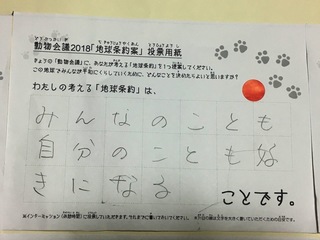 動物会議2018「地球条約案」投票用紙
きょうの「動物会議」に、あなたが考える「地球条約」を1つ提案してください。
この地球でみんなが平和にくらしていくために、どんなことを決めたらよいと思いますか？
わたしの考える「地球条約」は、
みんなのことも
自分のことも好
きになる
ことです。